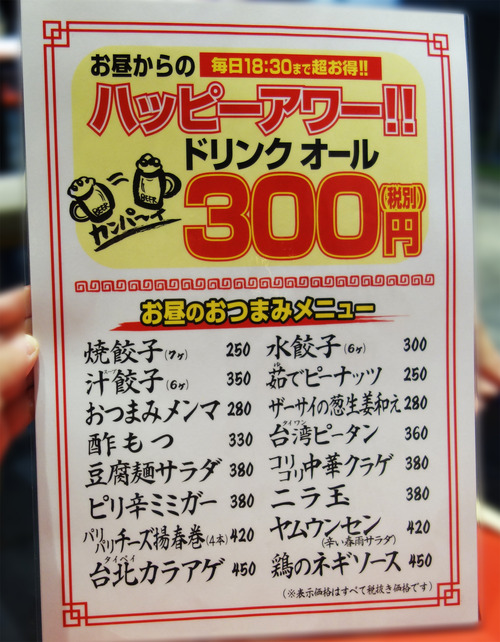 お昼からの 毎日18:30まで超お得!!
ハッピーアワー!!
ドリンク オール
300円(税別)
BEER BEER
カンパーイ
お昼のおつまみメニュー
焼餃子(7ヶ) 250 水餃子(6ヶ) 300
汁餃子(6ヶ) 350 茹でピーナッツ 250
おつまみメンマ 280 ザーサイの葱生姜和え 280
酢もつ 330 台湾ピータン 360
豆腐麺サラダ 380 コリコリ中華クラゲ 380
ピリ辛ミミガー 380 ニラ玉 380
パリパリチーズ揚春巻(4本) 420 ヤムウンセン(辛い春雨サラダ) 420
台北カラアゲ 450 鶏のネギソース 450
(※表示価格はすべて税抜き価格です)